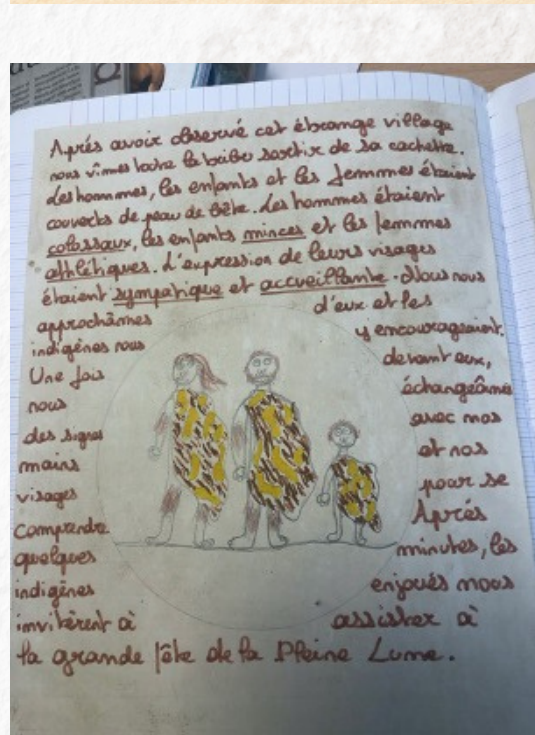 Aprés avoir observé cet étrange village
nous vîmes toute la tribu sortir de sa cachette.
Les hommes, les enfants et les femmes étaient
couverts de peau de bête. Les hommes étaient
colossaux, les enfants minces et les femmes
athlétiques. L'expression de leurs visages
étaient sympatique et accueillante. Nous nous
approchâmes d'eux et les
indigènes nous y encourageaient.
Une fois devant eux,
nous échangeâmes
des signes avec nos
mains et nos
visages pour se
comprendre Aprés
quelques minutes, les
indigènes enjoués nous
invitèrent à assister à
la grande fête de la Pleine Lune.